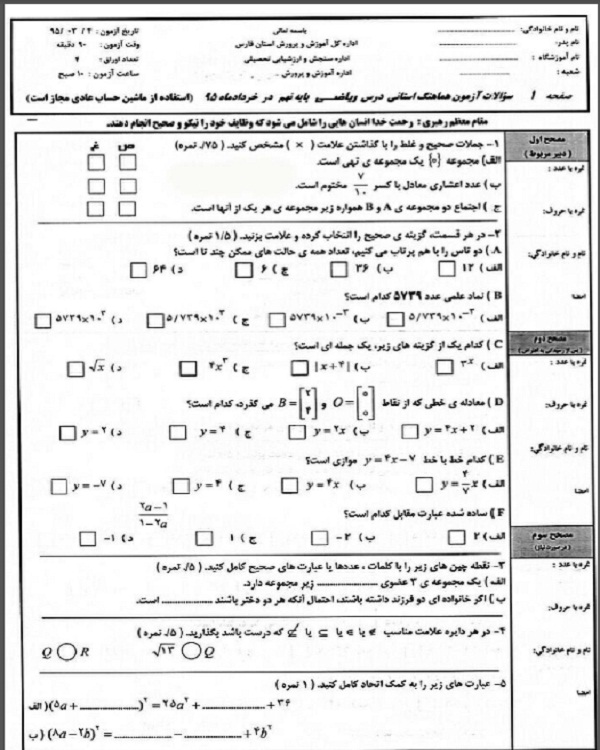 نام و نام خانوادگی:
نام پدر:
نام آموزشگاه :
شعبه :
باسمه تعالی
اداره کل آموزش و پرورش استان فارس
اداره سنجش و ارزشیابی تحصیلی
اداره آموزش و پرورش
تاریخ آزمون : ۴ / ۰۳ / ۹۵
وقت آزمون : ۹۰ دقیقه
تعداد اوراق : ۴
ساعت آزمون : ۱۰ صبح
صفحه ۱ سؤالات آزمون هماهنگ استانی درس ریاضی پایه نهم در خردادماه ۹۵ (استفاده از ماشین حساب عادی مجاز است)
مقام معظم رهبری : رحمت خدا انسان هایی را شامل می شود که وظایف خود را نیکو و صحیح انجام دهند.
مصحح اول
( دبیر مربوط )
نمره با عدد :
نمره با حروف:
نام و نام خانوادگی:
امضا
مصحح دوم
نمره با عدد :
نمره با حروف:
نام و نام خانوادگی:
امضا
مصحح سوم
(در صورت نیاز)
نمره با عدد :
نمره با حروف:
نام و نام خانوادگی:
امضا
۱- جملات صحیح و غلط را با گذاشتن علامت ( × ) مشخص کنید. ( ۷۵/. نمره ) ص غ
الف) مجموعه {۰} یک مجموعه ی تهی است.
ب ) عدد اعشاری معادل با کسر ۷/۱۰ مختوم است.
ج ) اجتماع دو مجموعه ی A و B همواره زیر مجموعه ی هر یک از آنها است.
۲- در هر قسمت، گزینه ی صحیح را انتخاب کرده و علامت بزنید. ( ۱/۵ نمره )
A ) دو تاس را با هم پرتاب می کنیم، تعداد همه ی حالت های ممکن چند تا است؟
الف ) ۱۲ ب ) ۳۶ ج ) ۶ د ) ۶۴
B ) نماد علمی عدد ۵۷۳۹ کدام است؟
الف ) ۵/۷۳۹×۱۰⁻³ ب ) ۵۷۳۹×۱۰⁻³ ج ) ۵/۷۳۹×۱۰³ د ) ۵۷۳۹×۱۰³
C ) کدام یک از گزینه های زیر، یک جمله ای است؟
الف ) ۳ˣ ب ) |x+۴| ج ) ۴x³ د ) √x
D ) معادله ی خطی که از نقاط O=[۰ ۰] و B=[۲ ۴] می گذرد، کدام است؟
الف ) y=۲x+۲ ب ) y=۲x ج ) y=۴ د ) y=۲
E ) کدام خط با خط y=۴x-۷ موازی است؟
الف ) y=۴/۷x ب ) y=۴x ج ) y=۴ د ) y=-۷
F ) ساده شده عبارت مقابل کدام است؟ ۲a-۱/۱-۲a
الف ) ۲ ب ) -۲ ج ) ۱ د ) -۱
۳- نقطه چین های زیر را با کلمات ، عددها یا عبارت های صحیح کامل کنید. ( ۵/. نمره )
الف ) یک مجموعه ی ۳ عضوی .................... زیر مجموعه دارد.
ب ) اگر خانواده ای دو فرزند داشته باشند، احتمال آنکه هر دو دختر باشند .................... است.
۴- در هر دایره علامت مناسب ∉ یا ∈ یا ⊆ یا ⊄ که درست باشد بگذارید. ( ۵/. نمره )
√۱۳ ○ Q Q ○ R
۵- عبارت های زیر را به کمک اتحاد کامل کنید. ( ۱ نمره )
الف) (۵a+....................)²=۲۵a²+....................+۳۶
ب) (۸a-۲b)²=....................-....................+۴b²